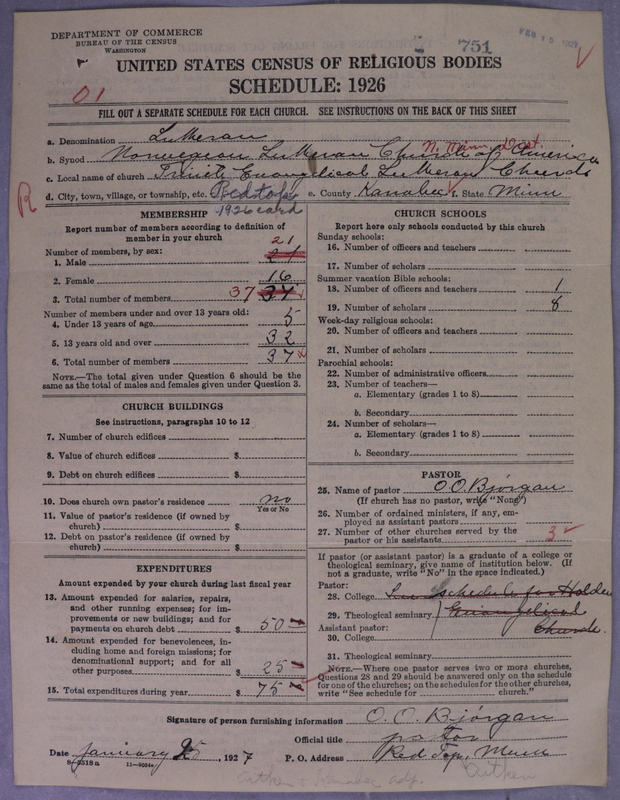 DEPARTMENT OF COMMERCE
BUREAU OF THE CENSUS
WASHINGTON
751
FEB 15 1927
UNITED STATES CENSUS OF RELIGIOUS BODIES
SCHEDULE: 1926
01
FILL OUT A SEPARATE SCHEDULE FOR EACH CHURCH. SEE INSTRUCTIONS ON THE BACK OF THIS SHEET
a. Denomination Lutheran
N. Minn. Dist.
b. Synod Norwegian Lutheran Church of America
c. Local name of church Evangelical Lutheran Church
R d. City, town, village, or township, etc. Redtop e. County Kanabec f. State Minn
1926 card
MEMBERSHIP
Report number of members according to definition of
member in your church
Number of members, by sex:
21
1. Male
2. Female 16
3. Total number of members 37
Number of members under and over 13 years old:
4. Under 13 years of age 5
5. 13 years old and over 32
6. Total number of members 37
NOTE.—The total given under Question 6 should be
same as the total of males and females given under Question 3.
CHURCH BUILDINGS
See instructions, paragraphs 10 to 12
7. Number of church edifices
8. Value of church edifices $
9. Debt on church edifices $
10. Does church own pastor's residence no
Yes or No
11. Value of pastor's residence (if owned by
church) $
12. Debt on pastor's residence (if owned by
church) $
EXPENDITURES
Amount expended by your church during last fiscal year
13. Amount expended for salaries, repairs,
and other running expenses; for im-
provements or new buildings; and for
payments on church debt $ 50
14. Amount expended for benevolences, in-
cluding home and foreign missions; for
denominational support; and for all
other purposes $ 25
15. Total expenditures during year $ 75
CHURCH SCHOOLS
Report here only schools conducted by this church
Sunday schools:
16. Number of officers and teachers
17. Number of scholars
Summer vacation Bible schools:
18. Number of officers and teachers 1
19. Number of scholars 8
Week-day religious schools:
20. Number of officers and teachers
21. Number of scholars
Parochial schools:
22. Number of administrative officers
23. Number of teachers—
a. Elementary (grades 1 to 8)
b. Secondary
24. Number of scholars—
a. Elementary (grades 1 to 8)
b. Secondary
PASTOR
25. Name of pastor O. O. Bjórgan
(If church has no pastor, write "None")
26. Number of ordained ministers, if any, em-
ployed as assistant pastors
27. Number of other churches served by the
pastor or his assistants 3
If pastor (or assistant pastor) is a graduate of a college or
theological seminary, give name of institution below. (If
not a graduate, write "No" in the space indicated.)
Pastor:
28. College See schedule for Holden
29. Theological seminary Evangelical
Assistant pastor: Church.
30. College
31. Theological seminary
NOTE.—Where one pastor serves two or more churches,
Questions 28 and 29 should be answered only on the schedule
for one of the churches; on the schedules for the other churches,
write "See schedule for church."
Signature of person furnishing information O. O. Bjórgan
Official title pastor
Date January 25, 1927 P. O. Address Red Top, Minn
8-5318a 11-9034
Aitken & Kanabec adj. Aitken